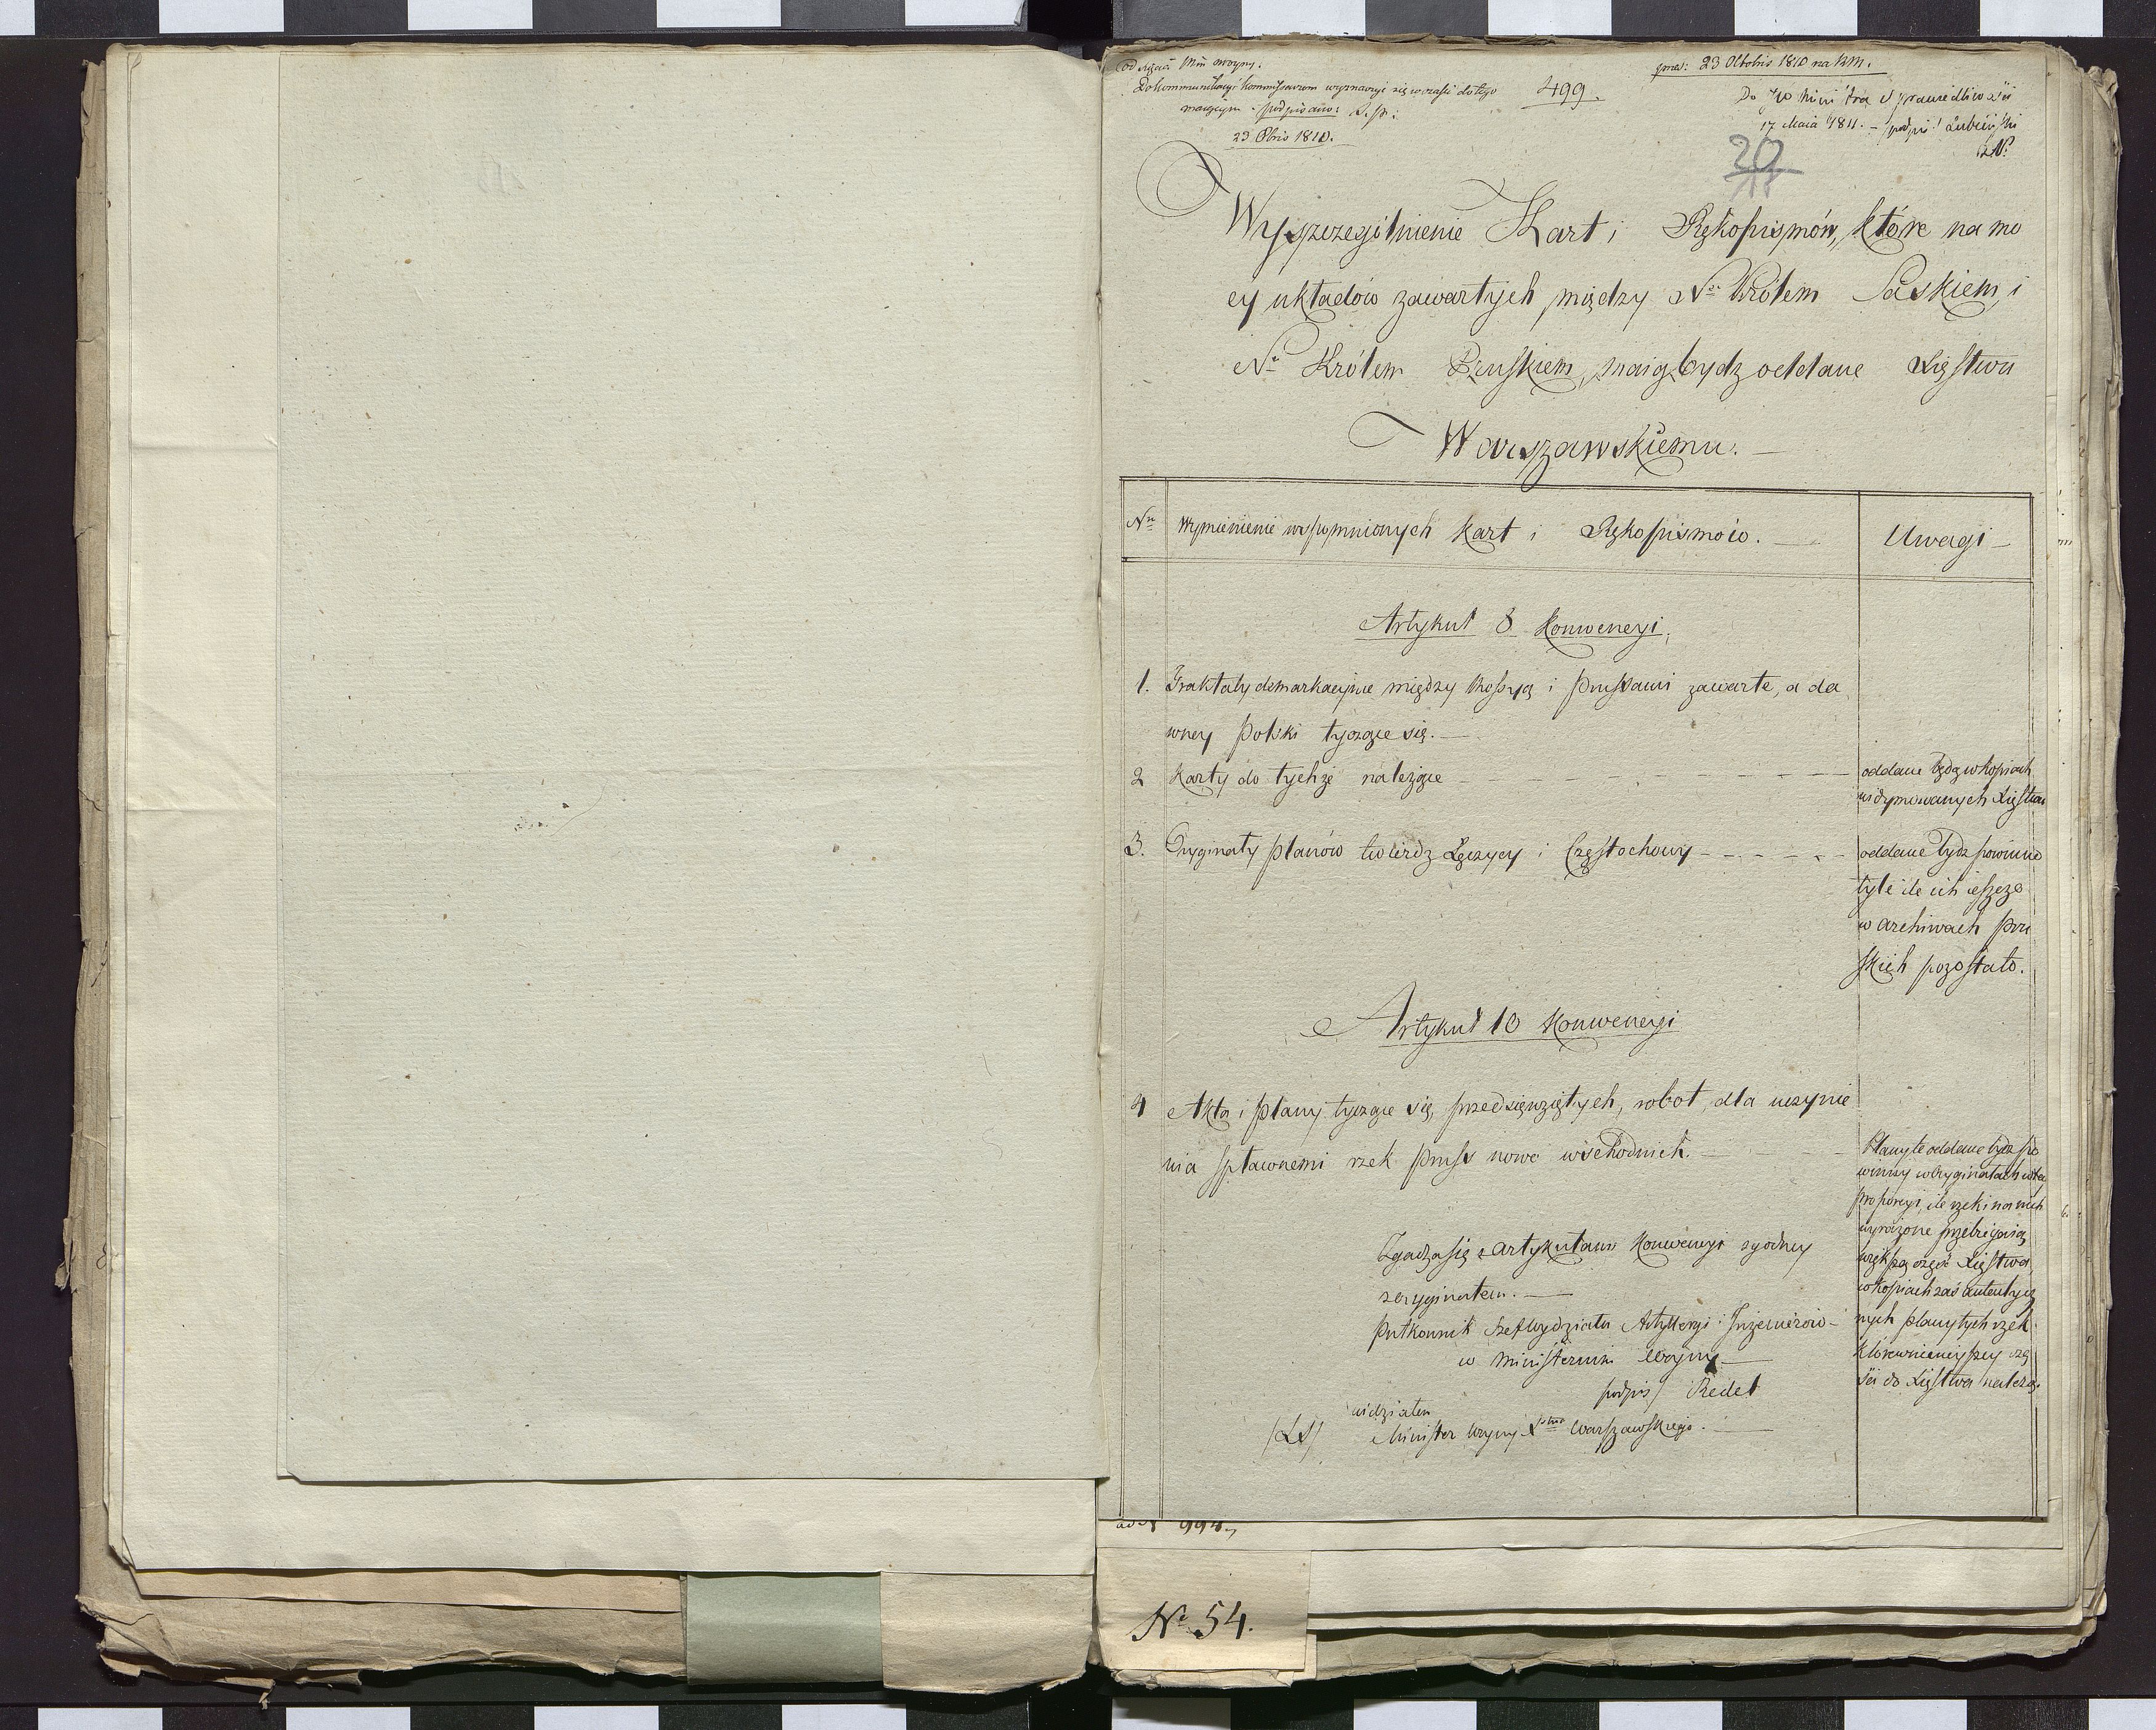 Min woyny.
praes: 23 Oktobris 1810 na KM.
Do kommunikacyi Kommissarzom wyznaczyć się w czasie do tego
499.
maiącym. podpisano: S. P.
Do JW Ministra Sprawiedliwości
23 8bris 1810.
17 Maia 1811. – podpis: Lubieński
20
Wyszczególnienie Kart i Rękopismów, które na mo
cy układów zawartych między Nm Królem Saskiem, i
Nm Królem Pruskiem, maią bydz oddane Xięstwu
Warszawskiemu. —
Nr
Wymienienie wspomnionych Kart i Rękopismów. —
Uwagi —
Artykuł 8 Konwencyi.
1. Traktaty demarkacyine między Rossyą i Prussami zawarte, a da
wney Polski tyczące się. —
2 Karty do tychże należące — — — — — —
oddane będą w kopiach
widymowanych Xięstwu
3. Oryginały planów twierdz Łęczycy i Częstochowy — — — — —
oddane bydz powinno
tyle ile ich ieszcze
w archiwach pru
skich pozostało.
Artykuł 10 Konwencyi
4 Akta i plany tyczące się przedsięwziętych robot, dla uczynie
nia spławnemi rzek Pruss nowo wschodnich. —
Plany te oddane bydz po
winny w oryginałach w tey
proporcyi, ile rzeki na nich
wyrażone przebiegaią
większą część Xięstwa
w kopiach zaś autentycz
nych plany tych rzek
które w mnieyszey czę
ści do Xięstwa należą.
Zgadza się z artykułami Konwencyi zgodney
z oryginałem. —
Pułkownik Szef Wydziału Artylleryi i Inżenierów —
w Ministerium Woyny —
podpis/ Redel
widziałem
/LS/ Minister Woyny Xstwa Warszawskiego. —
994.
No 54.